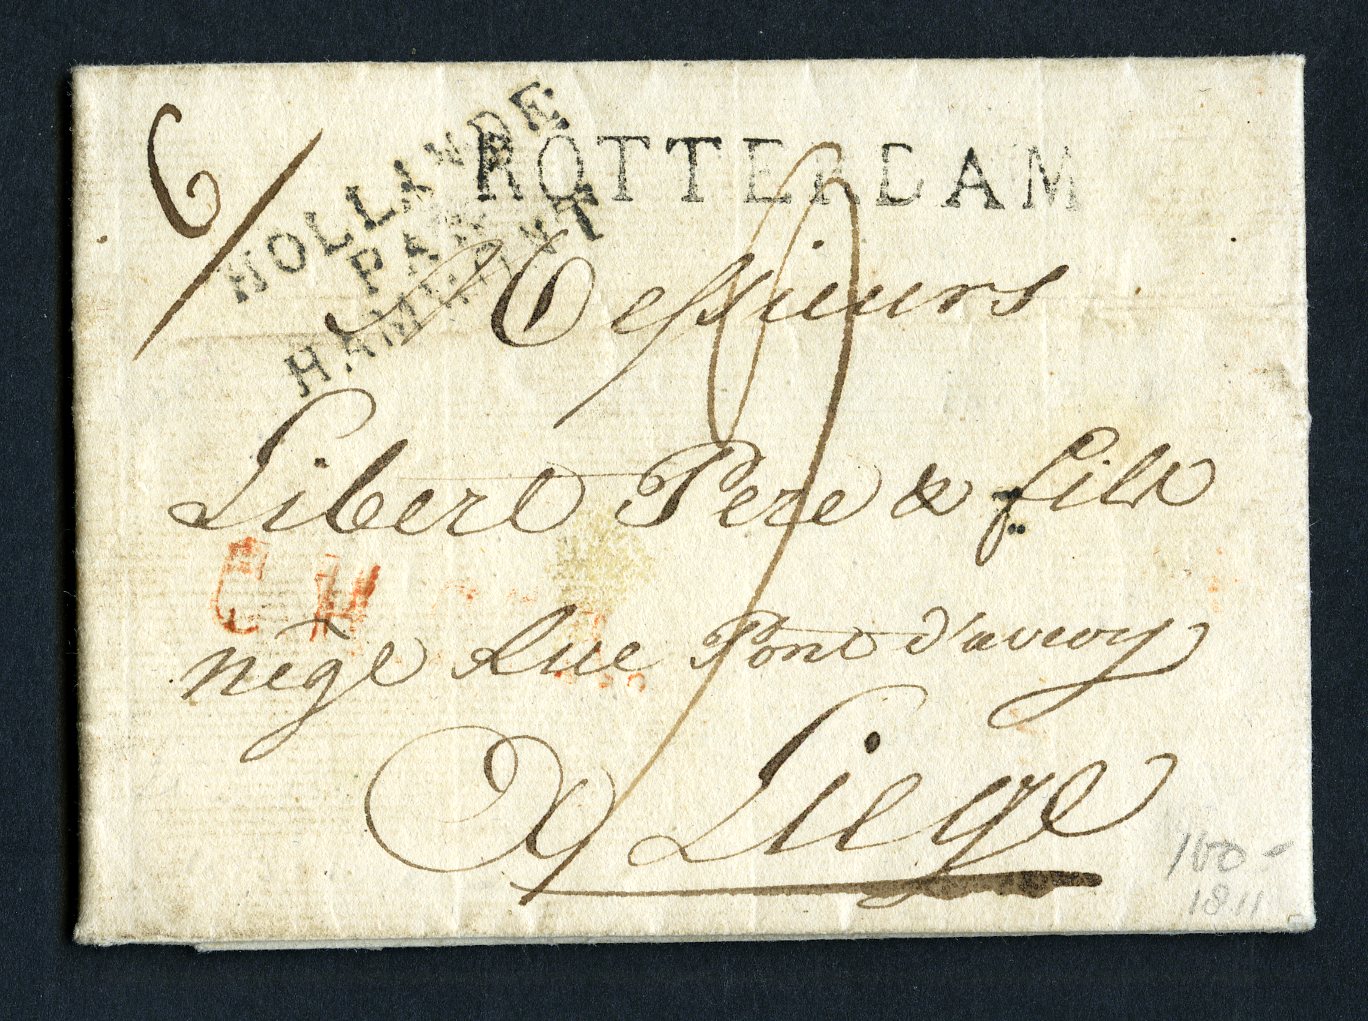 6/
ROTTERDAM
HOLLANDE
PAR
HAMMONT
Messieurs
Libert Pere & fils
negt Rue Pont d'avroy
A Liege
C H
100-
1811